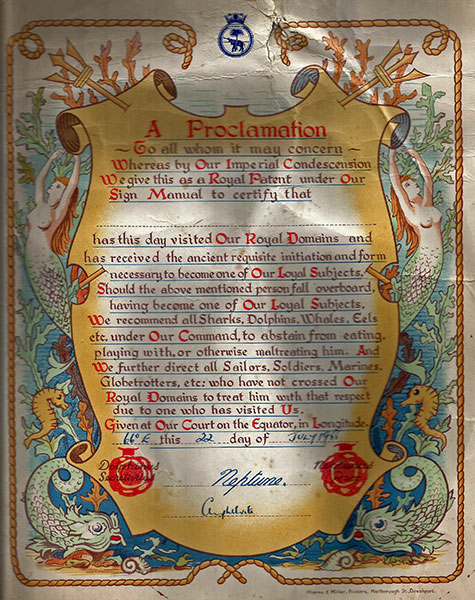 A Proclamation
~ To all whom it may concern ~
Whereas by Our Imperial Condescension
We give this as a Royal Patent under Our
Sign Manual to certify that
has this day visited Our Royal Domains and
has received the ancient requisite initiation and form
necessary to become one of Our Loyal Subjects.
Should the above mentioned person fall overboard,
having become one of Our Loyal Subjects,
We recommend all Sharks, Dolphins, Whales, Eels
etc. under Our Command, to abstain from eating,
playing with, or otherwise maltreating him. And
We further direct all Sailors, Soldiers, Marines,
Globetrotters, etc: who have not crossed Our
Royal Domains to treat him with that respect
due to one who has visited Us.
Given at Our Court on the Equator, in Longitude.
66°E this 22 day of JULY
Neptune.
Amphitrite